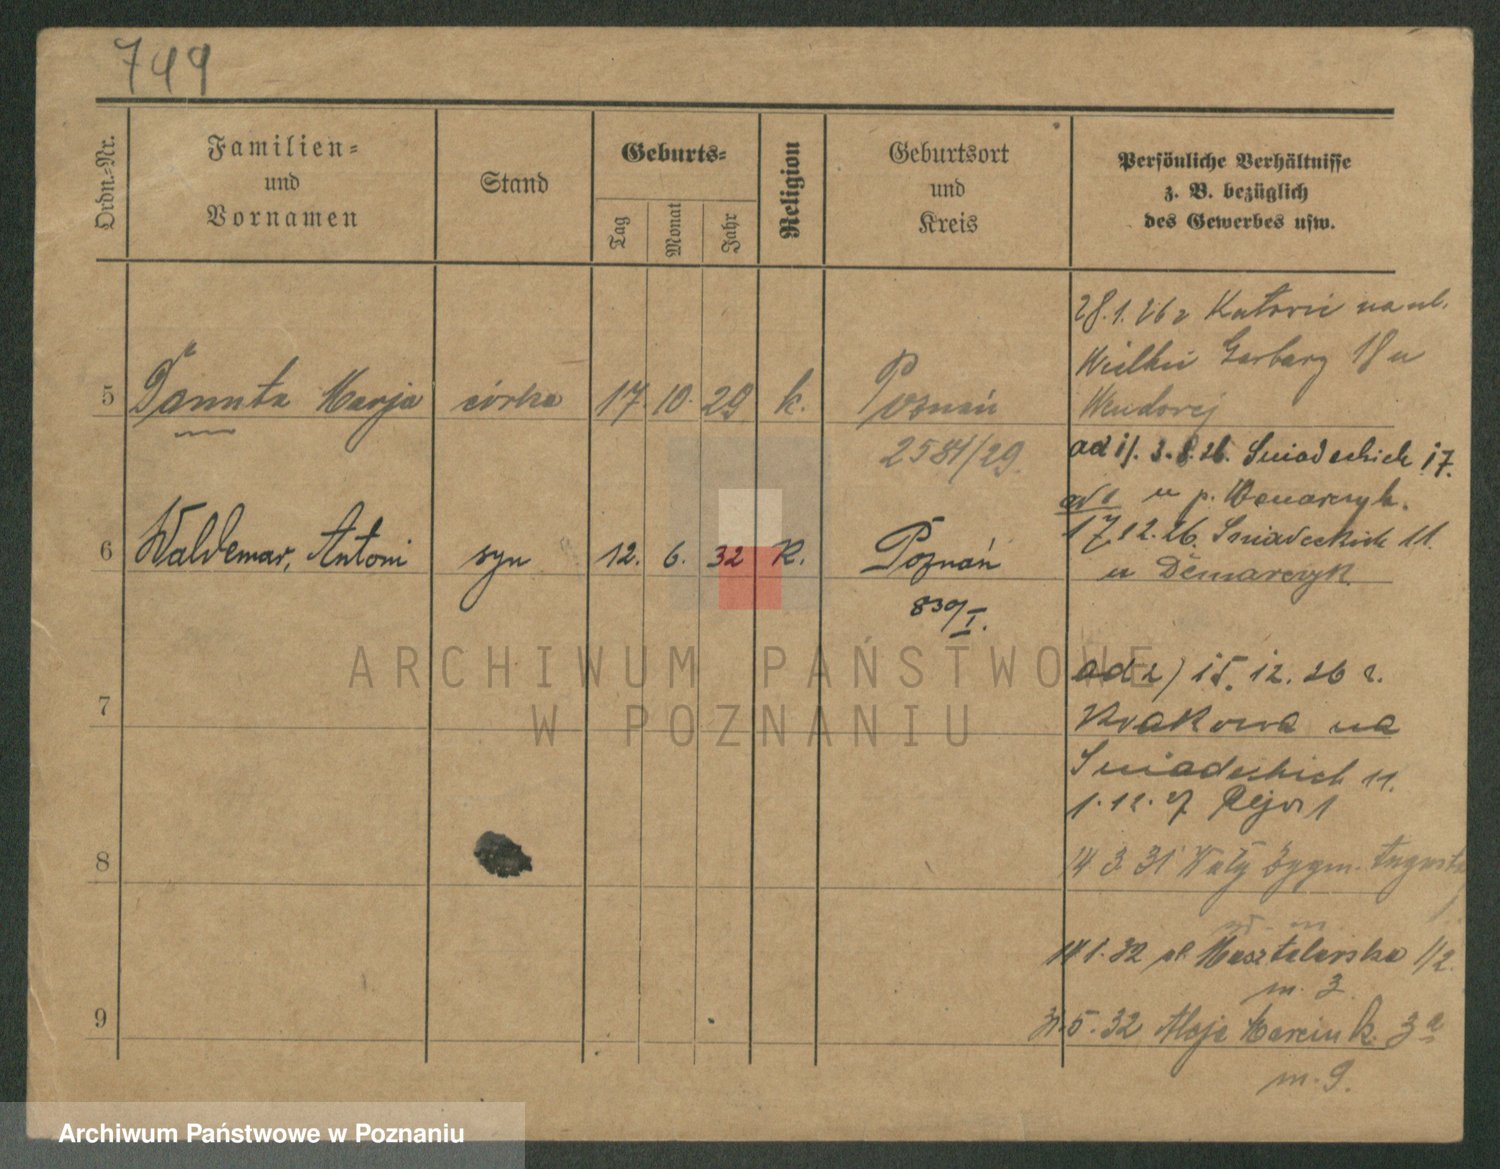 749
Ordn.-Nr.
Familien-
und
Vornamen
Stand
Geburts-
Tag
Monat
Jahr
Religion
Geburtsort
und
Kreis
Persönliche Verhältnisse
z. B. bezüglich
des Gewerbes usw.
28.1.26 z na ul.
Garbary 18 u
5 Danuta Marja córka 17. 10. 29 k. Poznań
2581/29.
ad 1/. 3.8.26. Śniadeckich 17.
u p.
6 Waldemar, Antoni syn 12. 6. 32 K. Poznań
830/I.
17.12.26. Śniadeckich 11.
u Demarczyk
ad 2) 15.12.26 r.
Krakowa na
7
Śniadeckich 11.
1.12.27
8
14 3. 31 Wały Zygm. Augusta
14 1. 32 ul. Masztalarska 1/2.
m. 3
9
31.5.32 Aleje Marcink. 3a
m. 9.
ARCHIWUM PAŃSTWOWE
W POZNANIU
Archiwum Państwowe w Poznaniu